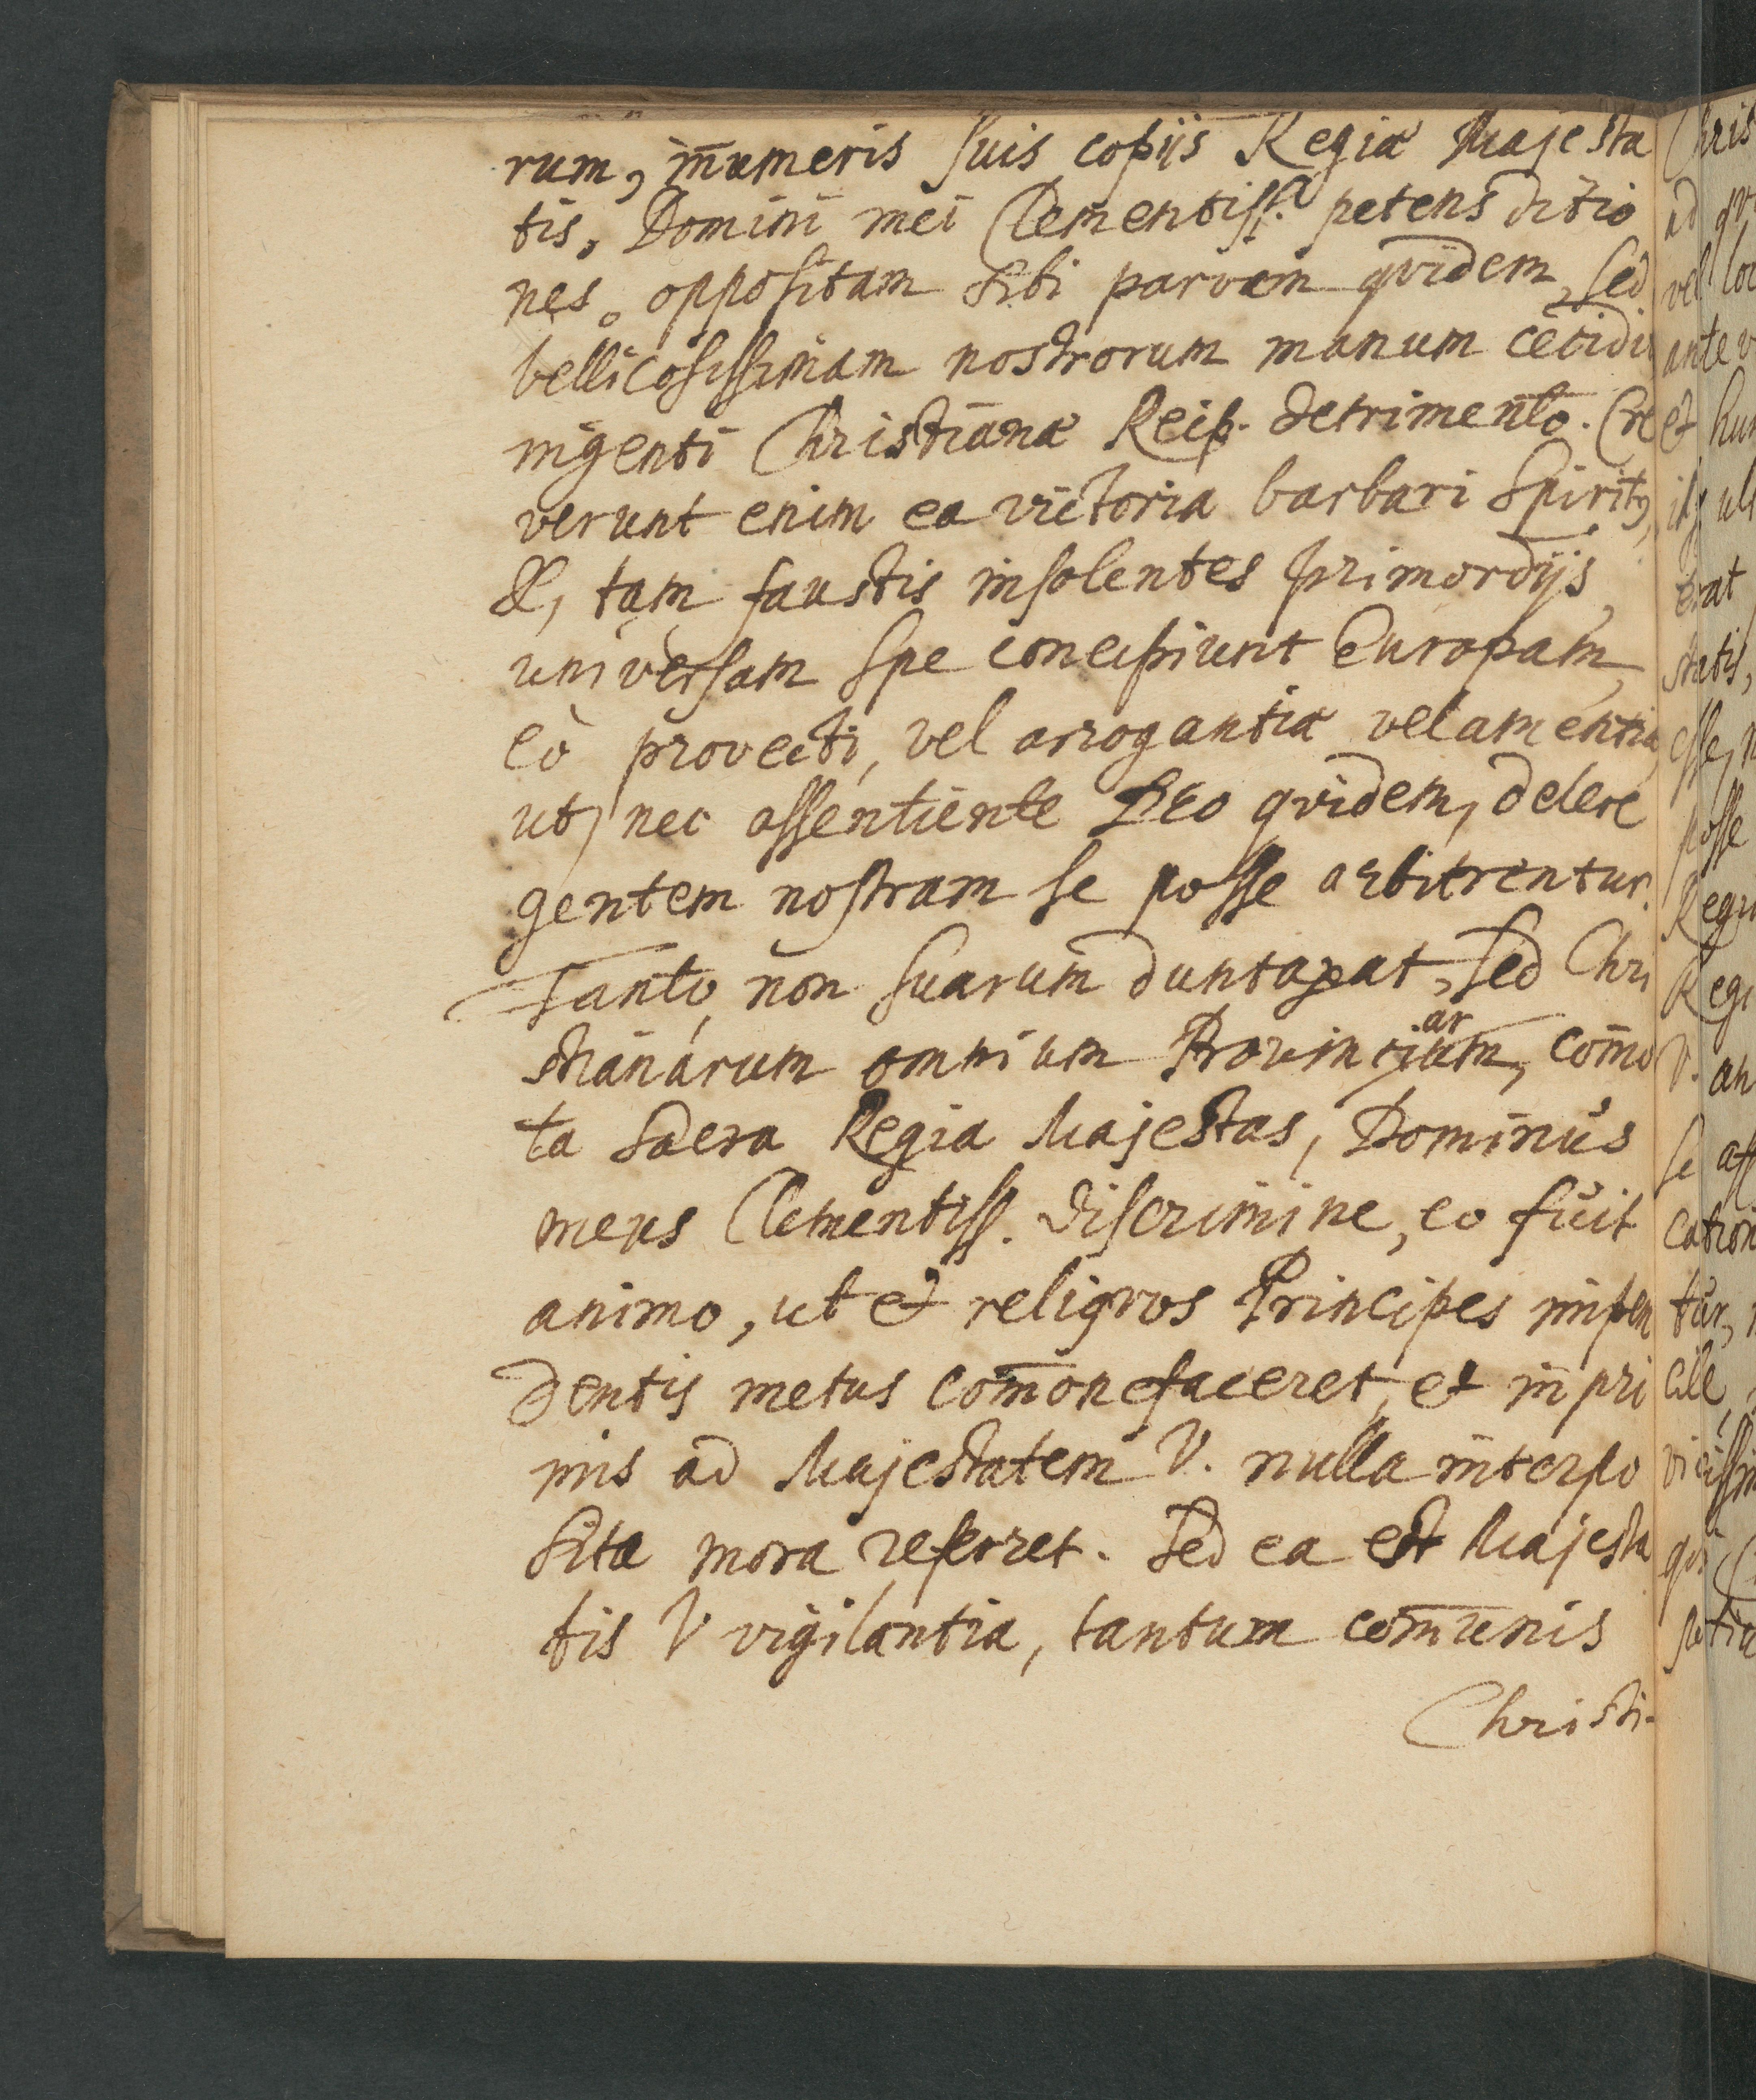 rum, in̄umeris suis copijs Regiæ Majesta
tis, Domini mei Clementiss.ª petens ditio
nes, oppositam sibi parvam qvidem, sed
bellicosissimam nostrorum manum cecidit
ingenti Christianæ Reip. detrimento. Cre
verunt enim ea victoria barbari Spiritꝰ,
&, tam faustis insolentes primordijs,
universam spe concipiunt Europam,
eò provecti, vel arrogantiæ vel amentiæ,
ut, nec assentiente Deo qvidem, delere
gentem nostram se posse arbitrentur.
Tanto, non suarum duntaxat, sed Chri
stianarum omnium Provinciarum, com̄o
ta Sacra Regia Majestas, Dominus
meus Clementiss. discrimine, eo fuit
animo, ut & reliqvos Principes impen
dentis metus com̄onefaceret, et in pri
mis ad Majestatem V. nulla interpo
sita mora referret. Sed ea est Majesta
tis V vigilantia, tantum com̄unis
Christi-